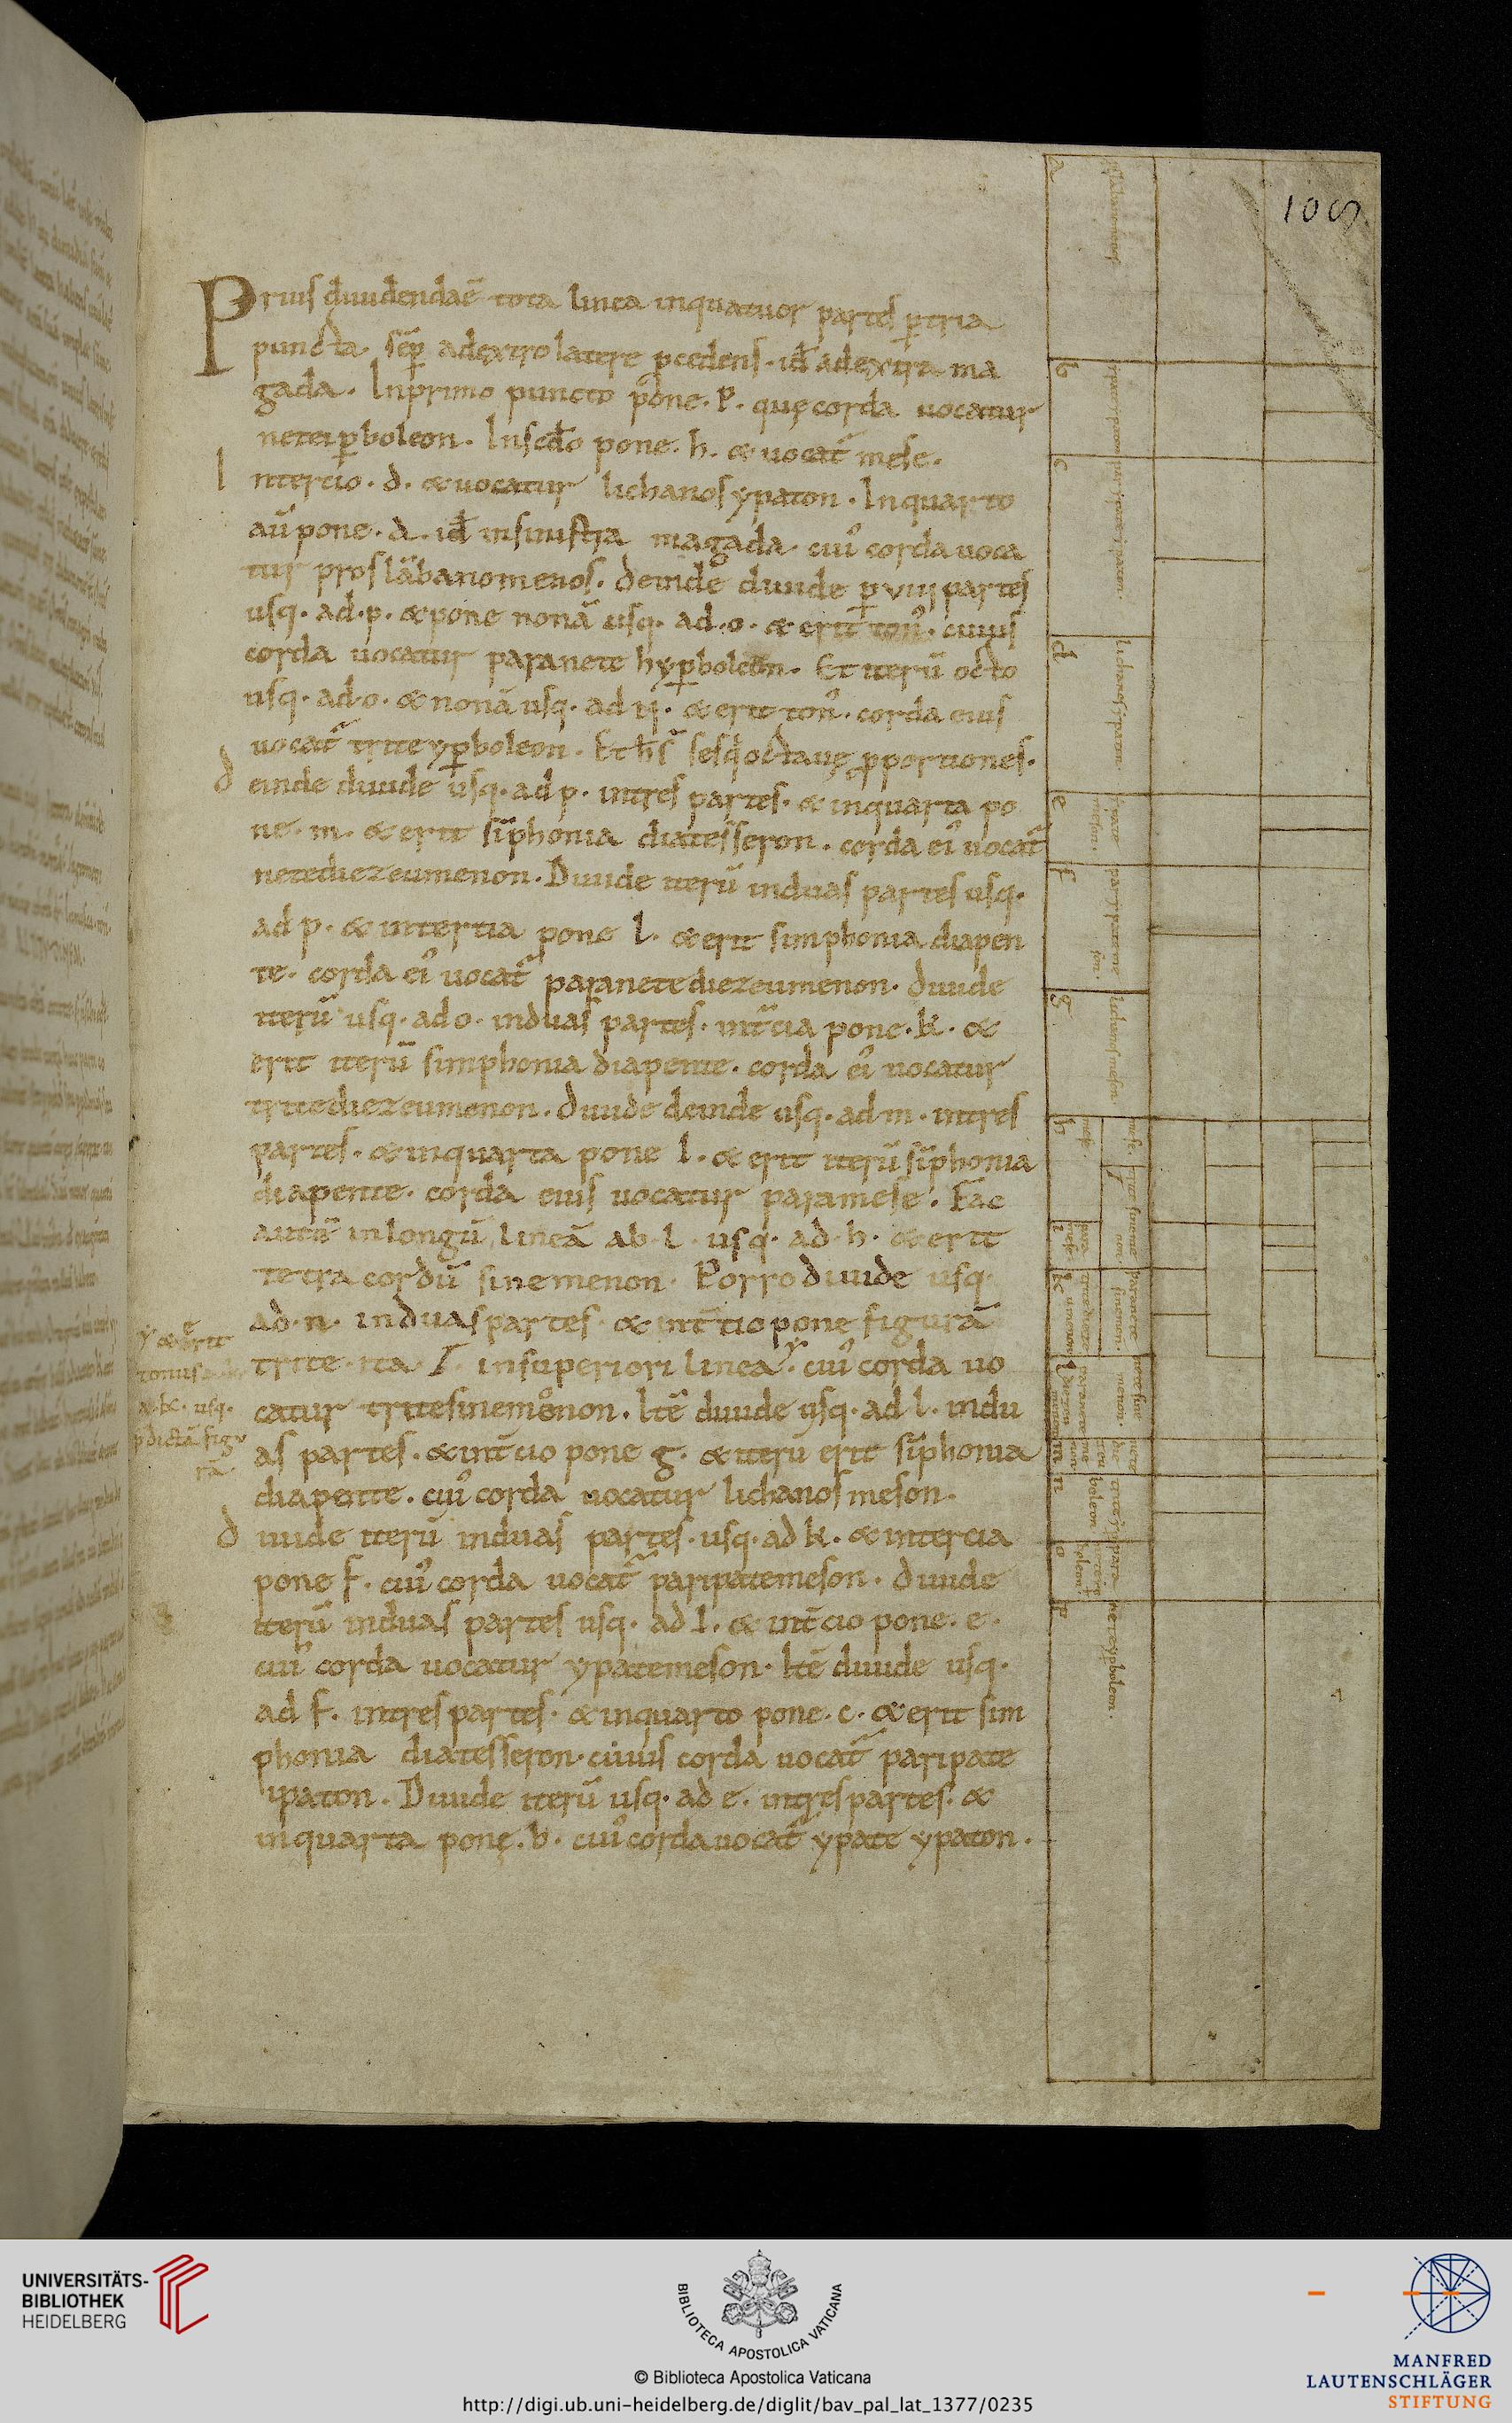 108
Prius diuidendae ̄ tota linea inquatuor partes ptria
puncta. sep̄ adextro latere pcedens. id ̄ adextra ma
gada. Inprimo puncto pone. P. quę corda uocatur
neteiꝑboleon. Inscd̄o pone. h. & uocat ̄ mese.
Intercio. d. & uocatur lichanosypaton. Inquarto
aūpone. A. id ̄ insinistra magada. cui᾽ corda uoca
tur proslābanomenos. deinde diuide ꝑ viii partes
usq. ad. p. & pone nonā usq. ad. o. & erit ton᾽. cuius
corda uocatur paranete hyꝑboleon. Et iterū octo
usq. ad. o. & nonā usq. ad n. & erit ton᾽. corda eius
uocat ̄ trite yꝑboleon. Et hs ̄ sesqoctauę proportiones.
deinde diuide usq. ad p. intres partes. & inquarta po
ne. m. & erit siphonia diatesseron. corda ei᾽ uocat ̄
netediezeumenon. Diuide iterū induas partes usq.
ad p. & intertia pone l. & erit simphonia diapen
te. corda ei᾽ uocat ̄ paranetediezeumenon. diuide
iterū usq. ad o. induas partes. int ̄cia pone. k. &
erit iterū simphonia diapente. corda ei᾽ uocatur
tritediezeumenon. diuide deinde usq. ad m. intres
partes. & inquarta pone l. & erit iterū siphonia
diapente. corda eius uocatur paramese. Fac
autē inlongū lineā ab. l. usq. ad. h. & erit
tetra cordū sinemenon. Porro diuide usq.
ad. n. induas partes. & int ̄tio pone figurā
trite. ita. I. insuperiori linea. y cui᾽ corda uo
catur tritesinemenon. Itē diuide usq. ad l. indu
as partes. & int ̄cio pone g. & iterū erit siphonia
diapente. cui᾽ corda uocatur lichanos meson.
diuide iterū induas partes. usq. ad k. & intercia
pone f. cui᾽ corda uocat ̄ paripatemeson. diuide
iterū induas partes usq. ad l. & int ̄cio pone. e.
cui᾽ corda uocatur ypatemeson. Itē diuide usq.
ad f. intres partes. & inquarto pone. c. & erit sim
phonia diatesseron. cuius corda uocat ̄ paripate
ipaton. Diuide iterū usq. ad e. intres partes. &
inquarta pone. b. cui᾽ corda uocat ̄ ypate ypaton.
y & erit
tonus
a. k. usq.
pdictā figu
rā
a
b
c
d
e
f
g
h
i
k
l
m
n
o
p
lichanos meson
mese.
UNIVERSITÄTS-
BIBLIOTHEK
HEIDELBERG
BIBLIOTECA APOSTOLICA VATICANA
© Biblioteca Apostolica Vaticana
http://digi.ub.uni-heidelberg.de/diglit/bav_pal_lat_1377/0235
MANFRED
LAUTENSCHLÄGER
STIFTUNG